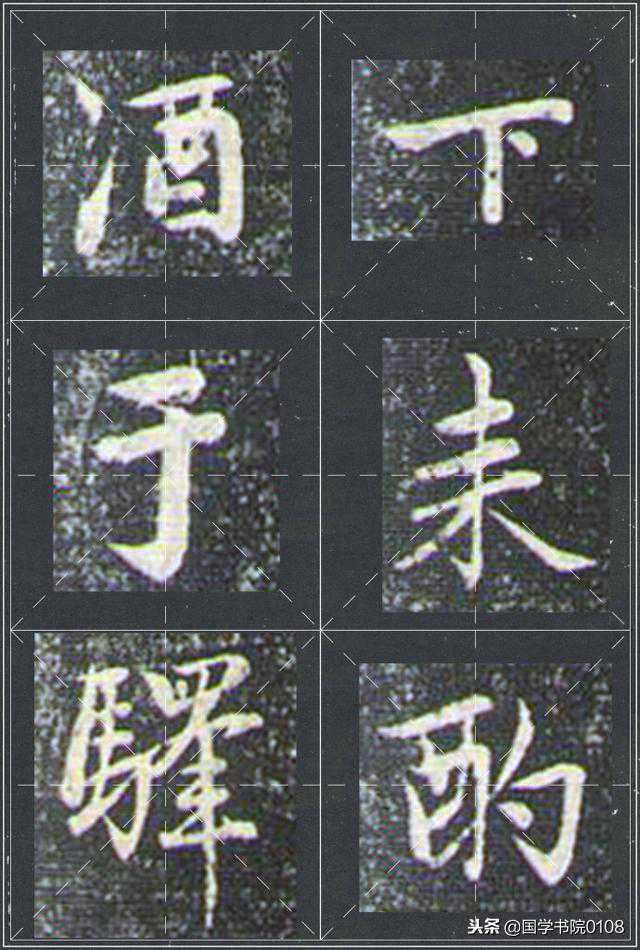 下耒酌
酒于驛
头条 @国学书院0108